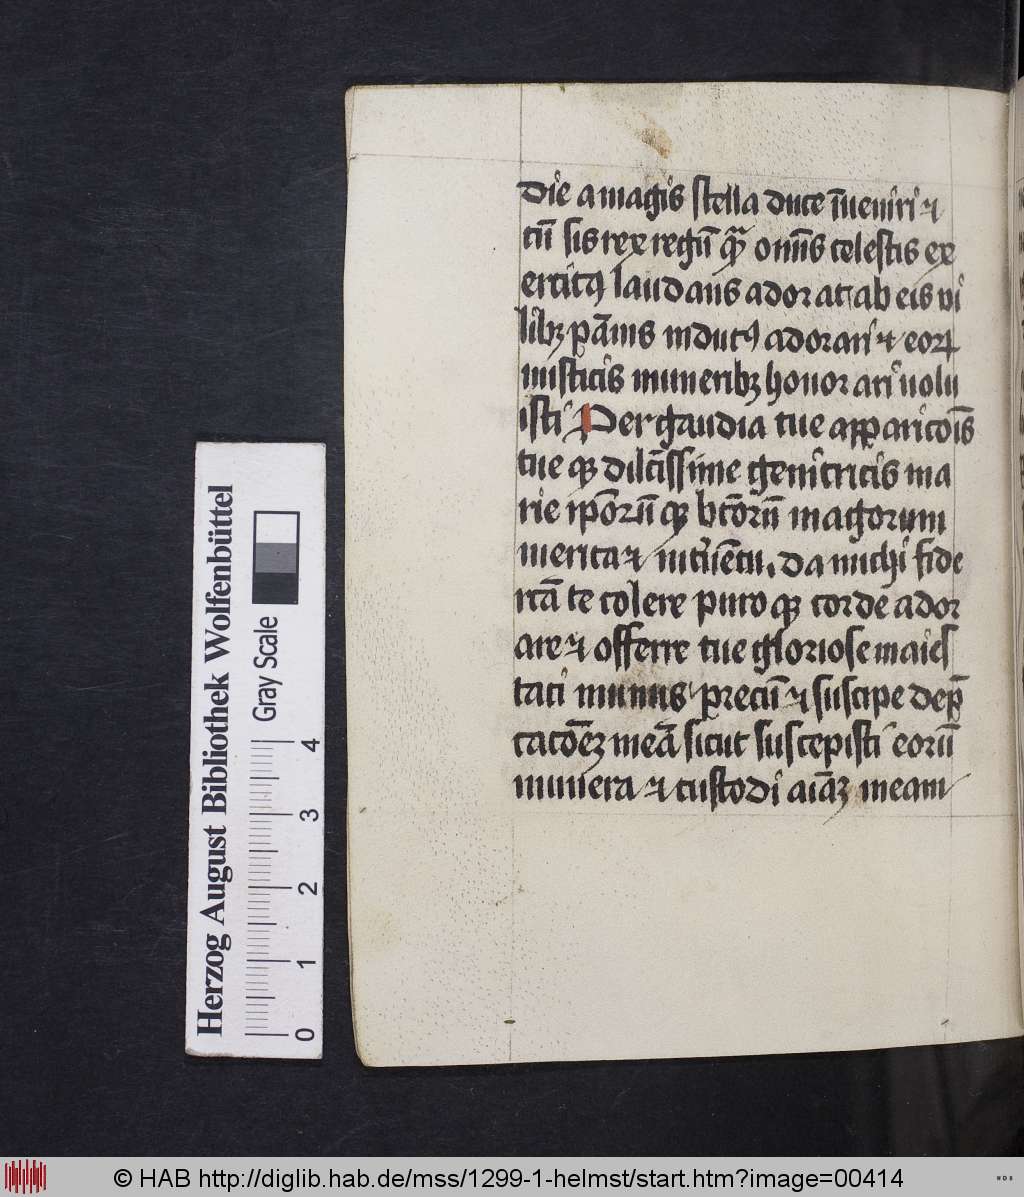 die a magis stella duce īueniri ⁊
cū sis rex regū qr̄ omīs celestis ex
ercitꝰ laudans adorat ab eis vi
libꝫ pānis indutꝰ adorari ⁊ eoꝝ
misticis muneribꝫ honorari volu
isti Per gaudia tue apparicōis
tue qꝫ dilc̄issime genitricis ma
rie ip̄orū qꝫ btōrū magorum
merita ⁊ da michi fide
rc̄a te colere puro qꝫ corde ador
are ⁊ offerre tue gloriose maies
tati munus preciū ⁊ suscipe dep̄
cacōeꝫ meā sicut suscepisti eorū
munera ⁊ custodi aiāꝫ meam
Herzog August Bibliothek Wolfenbüttel
Gray Scale
0 1 2 3 4
© HAB http://diglib.hab.de/mss/1299-1-helmst/start.htm?image=00414